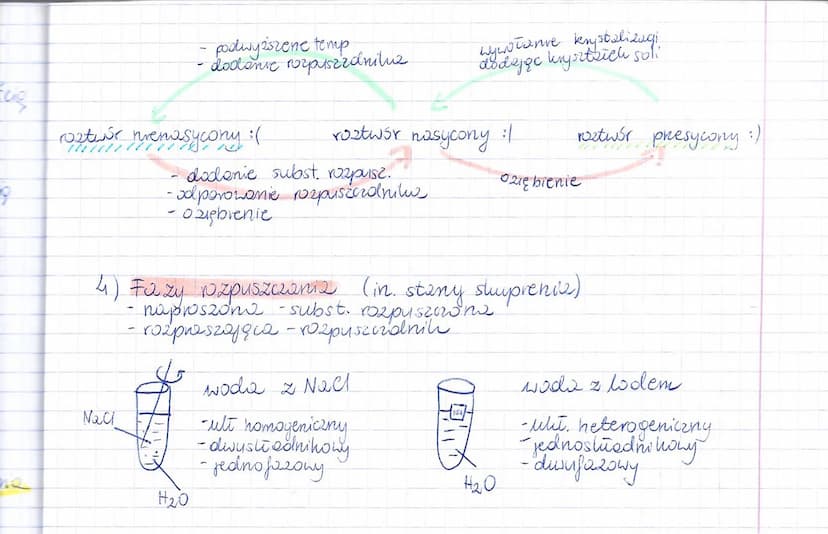 - podwyższenie temp
- dodanie rozpuszczalnika
wywołanie krystalizacji
dodając kryształek soli
roztwór nienasycony :(
roztwór nasycony :|
roztwór przesycony :)
- dodanie subst. rozpuszcz.
- odparowanie rozpuszczalnika
- oziębienie
oziębienie
4) Fazy rozpuszczania (in. stany skupienia)
- rozproszona - subst. rozpuszczona
- rozpraszająca - rozpuszczalnik
woda z NaCl
NaCl
- ukł homogeniczny
- dwuskładnikowy
- jednofazowy
H2O
woda z lodem
- ukł. heterogeniczny
- jednoskładnikowy
- dwufazowy
H2O